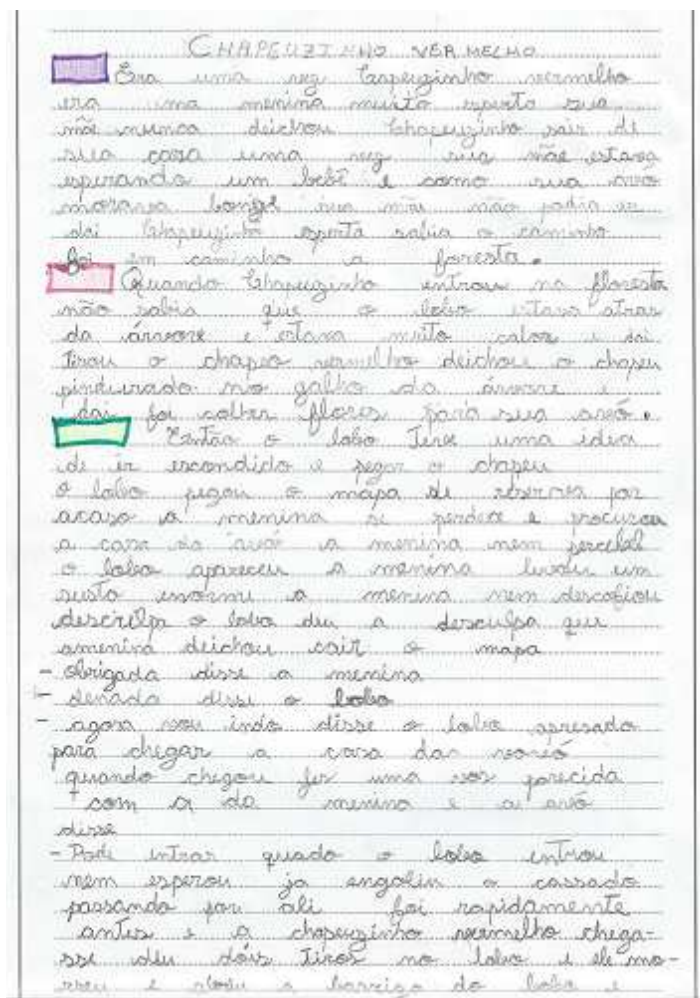 CHAPEUZINHO VERMELHO
Era uma vez Chapeuzinho vermelho
era uma menina muito esperta sua
mãe nunca deichou Chapeuzinho sair de
sua casa uma vez sua mãe estava
esperando um bebê e como sua avó
morava longe sua mãe não podia ir
dai Chapeuzinho esperta sabia o caminho
foi em caminho a foresta.
Quando Chapeuzinho entrou na floresta
não sabia que o lobo estava atras
da árvore e estava muito calor e dai
tirou o chapeo vermelho deichou o chapeu
pindurado no galho da árvore e
dai foi colher flores para sua avó.
Então o lobo teve uma idea
de ir escondido e pegar o chapeu
o lobo pegou o mapa de reserva por
acaso a menina se perdece e procurou
a casa da avó a menina nem percebeu
o lobo apareceu a menina levou um
susto enorme a menina nem descofiou
o lobo deu a desculpa que
amenina deichou cair o mapa
- obrigada disse a menina
- denada disse o lobo
- agora vou indo disse o lobo apresado
para chegar a casa da
quando chegou fes uma vos parecida
com a da menina e a avó
disse
- Pode entrar quado o lobo entrou
nem esperou ja engoliu o cassado
passando por ali foi rapidamente
antes e a chapeuzinho vermelho chega-
sse deu dois tiros no lobo e ele mo-
rreu e abriu a barriga do lobo e